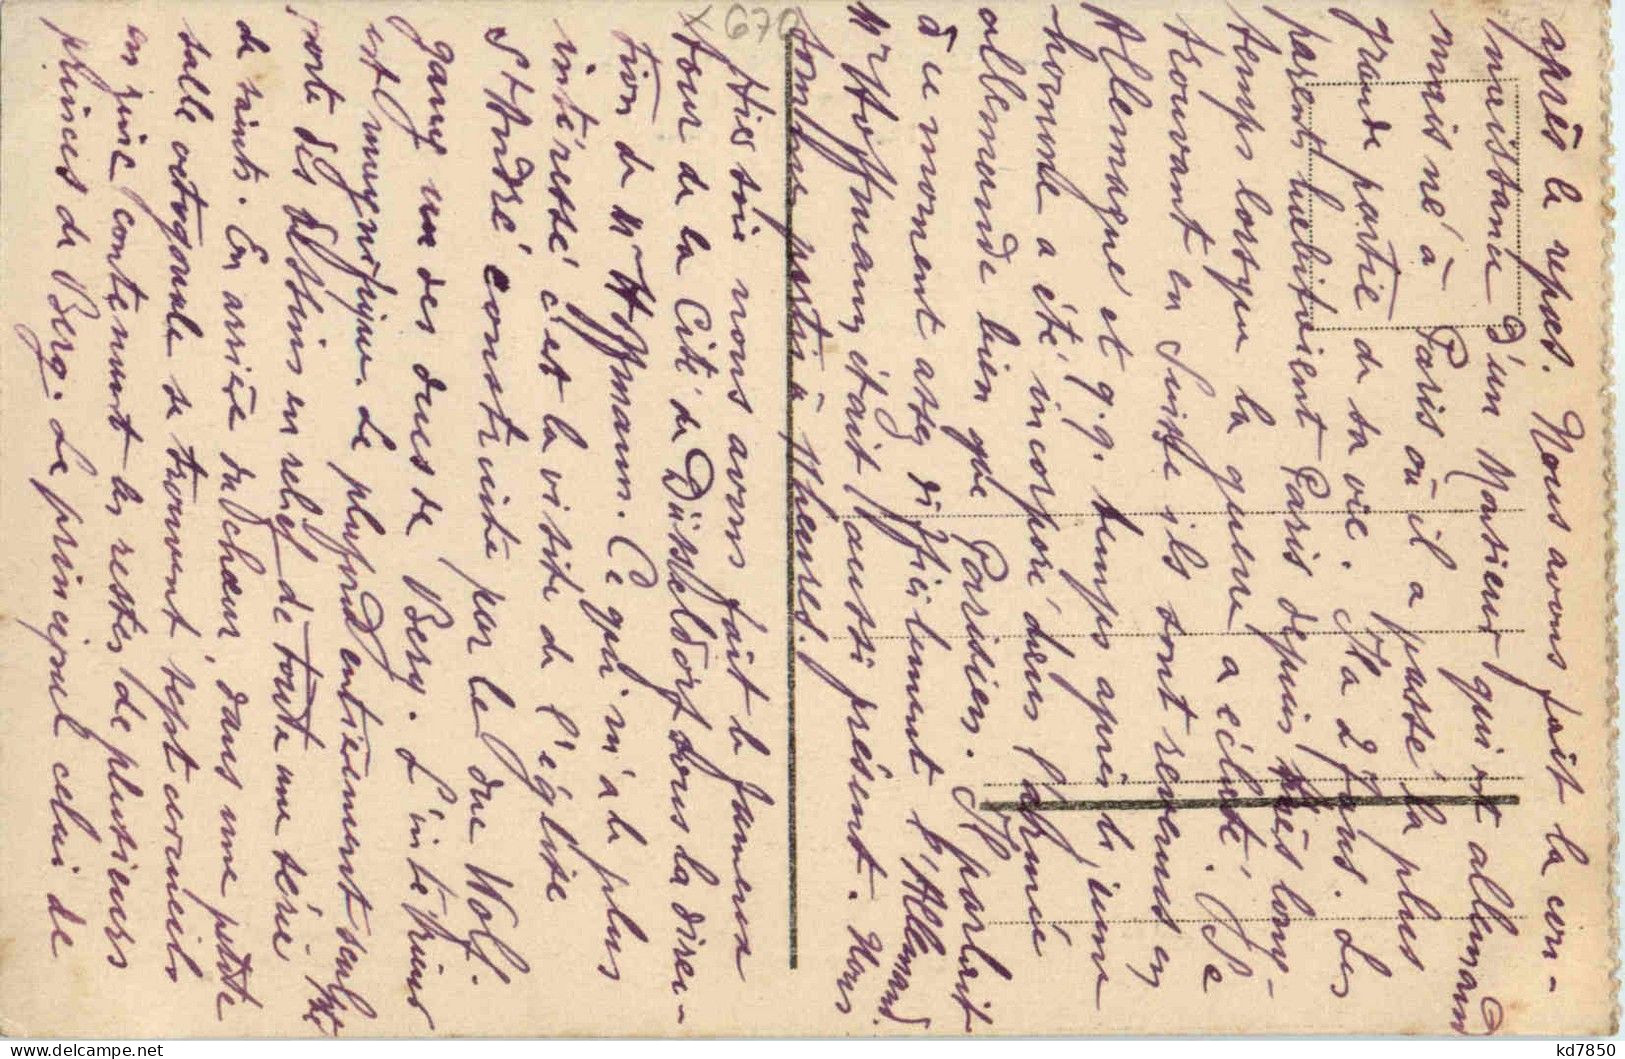 après le repas. Nous avons fait la con-
naissance d'un Monsieur qui est allemand
mais né à Paris où il a passé la plus
grande partie de sa vie. Il a 29 ans. Les
parents habitaient Paris depuis très long-
temps lorsque la guerre a éclaté. Se
trouvant en Suisse ils sont revenus en
Allemagne et q.q. temps après le jeune
homme a été incorporé dans l'armée
allemande bien que Parisien. Il parlait
à ce moment assez difficilement l'Allemand.
Mr Hoffmann était aussi présent. Nous
sommes partis à heures.
Hier soir nous avons fait le fameux
tour de la Cité de Düsseldorf sous la direc-
tion de Mr Hoffmann. Ce qui m'a le plus
intéressé c'est la visite de l'église
St André construite par le duc Wolf-
gang un des ducs de Berg. L'intérieur
est magnifique. Le plafond entièrement sculpté
porte des dessins en relief de toute une série
de saints. En arrière du chœur, dans une petite
salle octogonale se trouvent sept cercueils
en zinc contenant les restes de plusieurs
princes de Berg. Le principal celui de
x 670
kd7850